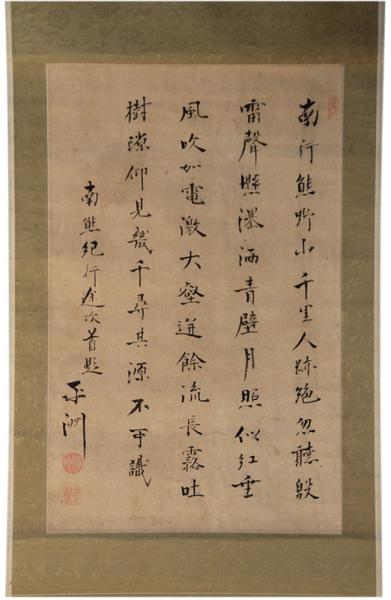 南行熊野山千里人跡絶忽聽殷
雷聲懸瀑洒青壁月照似虹垂
風吹如電激大壑迸餘流長霧吐
樹隙仰見幾千尋其源不可識
南熊紀行途次首題
洲